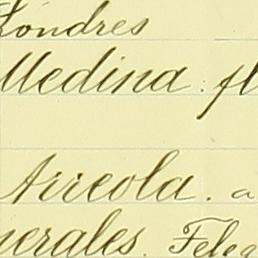 Londres
Medina. fl
Arreola. a
nerales. Teleg